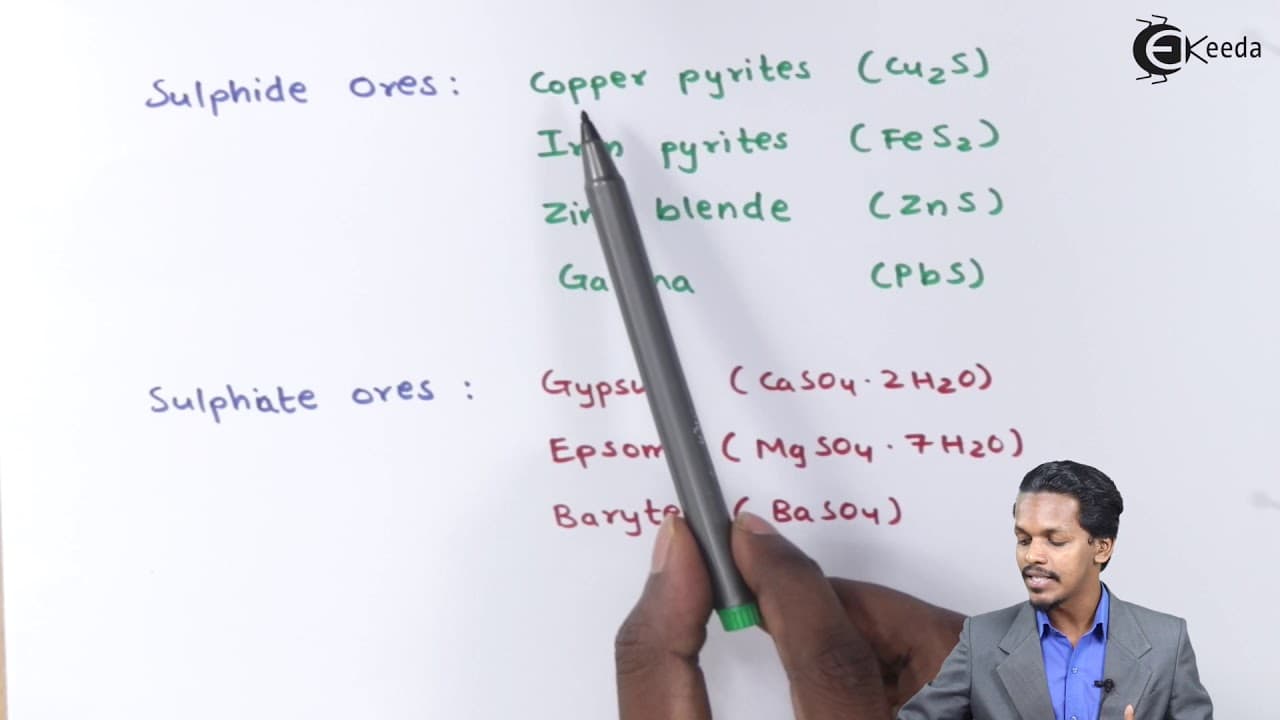 EKeeda
Sulphide ores : Copper pyrites (Cu₂S)
Iron pyrites (FeS₂)
Zinc blende (ZnS)
Galena (PbS)
Sulphate ores : Gypsum (CaSO₄·2H₂O)
Epsom (MgSO₄·7H₂O)
(BaSO₄)